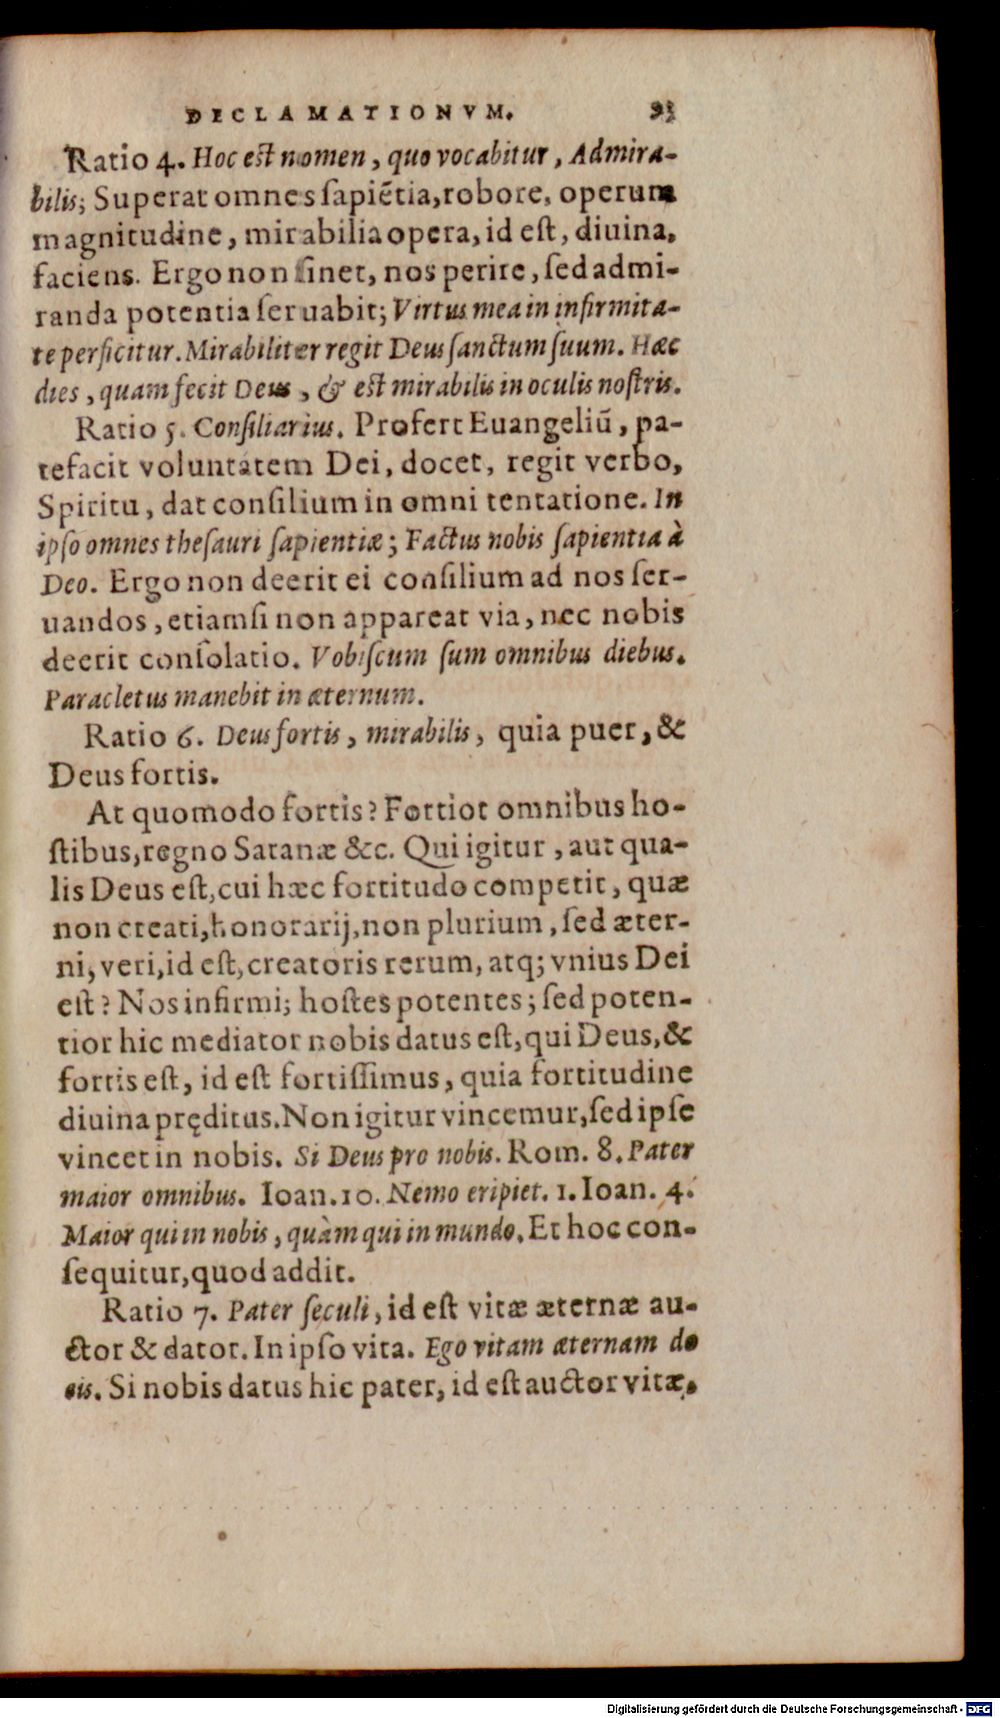 DECLAMATIONVM. 93
Ratio 4. Hoc est nomen, quo vocabitur, Admira-
bilis; Superat omnes sapiẽtia, robore, operum
magnitudine, mirabilia opera, id est, diuina,
faciens. Ergo non sinet, nos perire, sed admi-
randa potentia seruabit; Virtus mea in infirmita-
te perficitur. Mirabiliter regit Deus sanctum suum. Hæc
dies, quam fecit Deus, & est mirabilis in oculis nostris.
Ratio 5. Consiliarius. Profert Euangeliũ, pa-
tefacit voluntatem Dei, docet, regit verbo,
Spiritu, dat consilium in omni tentatione. In
ipso omnes thesauri sapientiæ; Factus nobis sapientia à
Deo. Ergo non deerit ei consilium ad nos ser-
uandos, etiamsi non appareat via, nec nobis
deerit consolatio. Vobiscum sum omnibus diebus.
Paracletus manebit in æternum.
Ratio 6. Deus fortis, mirabilis, quia puer, &
Deus fortis.
At quomodo fortis? Fortior omnibus ho-
stibus, regno Satanæ &c. Qui igitur, aut qua-
lis Deus est, cui hæc fortitudo competit, quæ
non creati, honorarij, non plurium, sed æter-
ni, veri, id est, creatoris rerum, atq; vnius Dei
est? Nos infirmi; hostes potentes; sed poten-
tior hic mediator nobis datus est, qui Deus, &
fortis est, id est fortissimus, quia fortitudine
diuina pręditus. Non igitur vincemur, sed ipse
vincet in nobis. Si Deus pro nobis. Rom. 8. Pater
maior omnibus. Ioan. 10. Nemo eripiet. 1. Ioan. 4.
Maior qui in nobis, quàm qui in mundo. Et hoc con-
sequitur, quod addit.
Ratio 7. Pater seculi, id est vitæ æternæ au-
ctor & dator. In ipso vita. Ego vitam æternam do
eis. Si nobis datus hic pater, id est auctor vitæ,
Digitalisierung gefördert durch die Deutsche Forschungsgemeinschaft - DFG